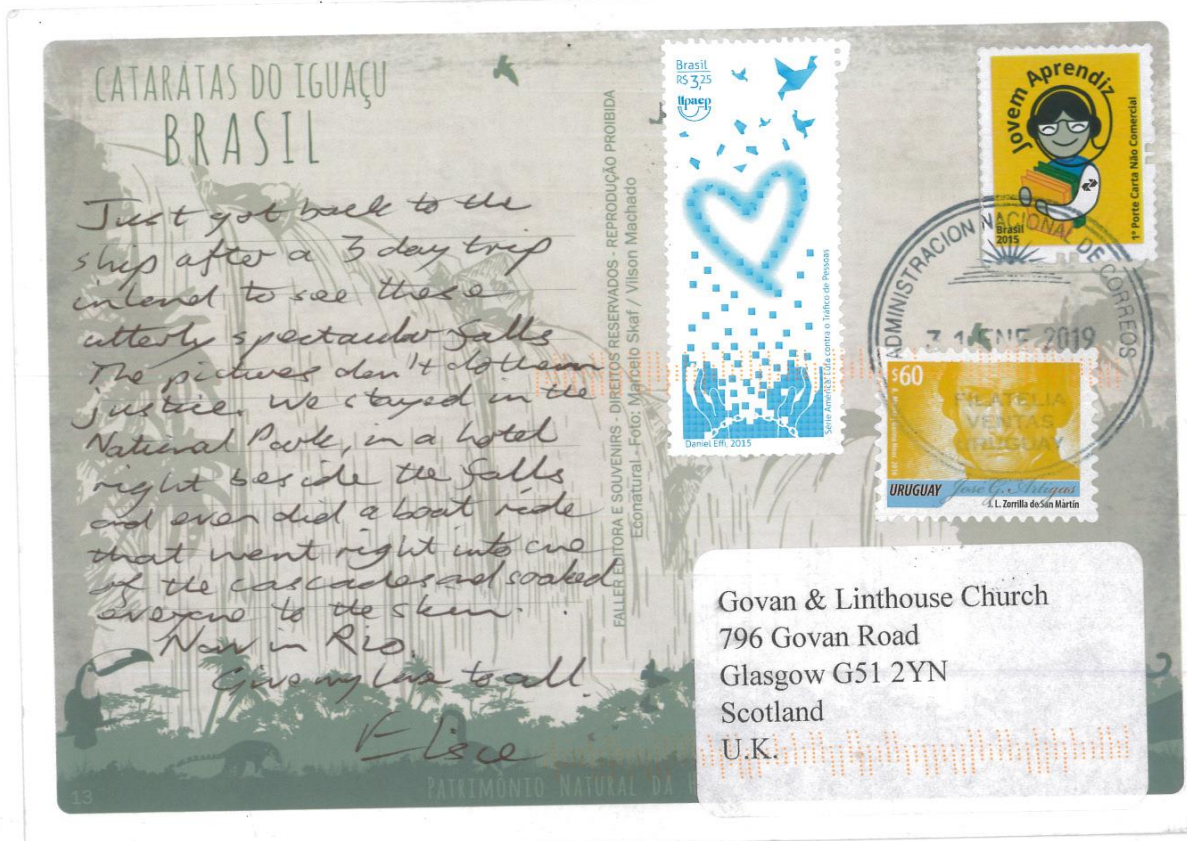 CATARATAS DO IGUAÇU
BRASIL
Just got back to the
ship after a 3 day trip
inland to see these
utterly spectacular falls
The pictures don't do them
justice. We stayed in the
National Park, in a hotel
right beside the falls
and even did a boat ride
that went right into one
of the cascades and soaked
everyone to the skin.
Now in Rio.
Give my love to all.
Elsie
13
PATRIMÔNIO NATURAL DA
FALLER EDITORA E SOUVENIRS - DIREITOS RESERVADOS - REPRODUÇÃO PROIBIDA
Econatural - Foto: Marcelo Skaf / Vilson Machado
Brasil
R$ 3,25
Upaep
Série América: Luta contra o Tráfico de Pessoas
Daniel Effi. 2015
Jovem Aprendiz
1º Porte Carta Não Comercial
Brasil
2015
ADMINISTRACION NACIONAL DE CORREOS
31 ENE 2019
FILATELIA
VENTAS
URUGUAY
$60
URUGUAY
José G. Artigas
J. L. Zorrilla de San Martín
Govan & Linthouse Church
796 Govan Road
Glasgow G51 2YN
Scotland
U.K.